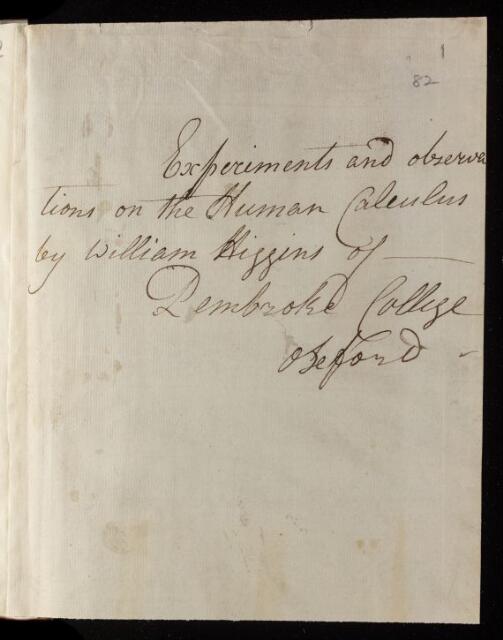 1
82
Experiments and observa
tions on the Human Calculus
by William Higgins of
Pembroke College
Oxford